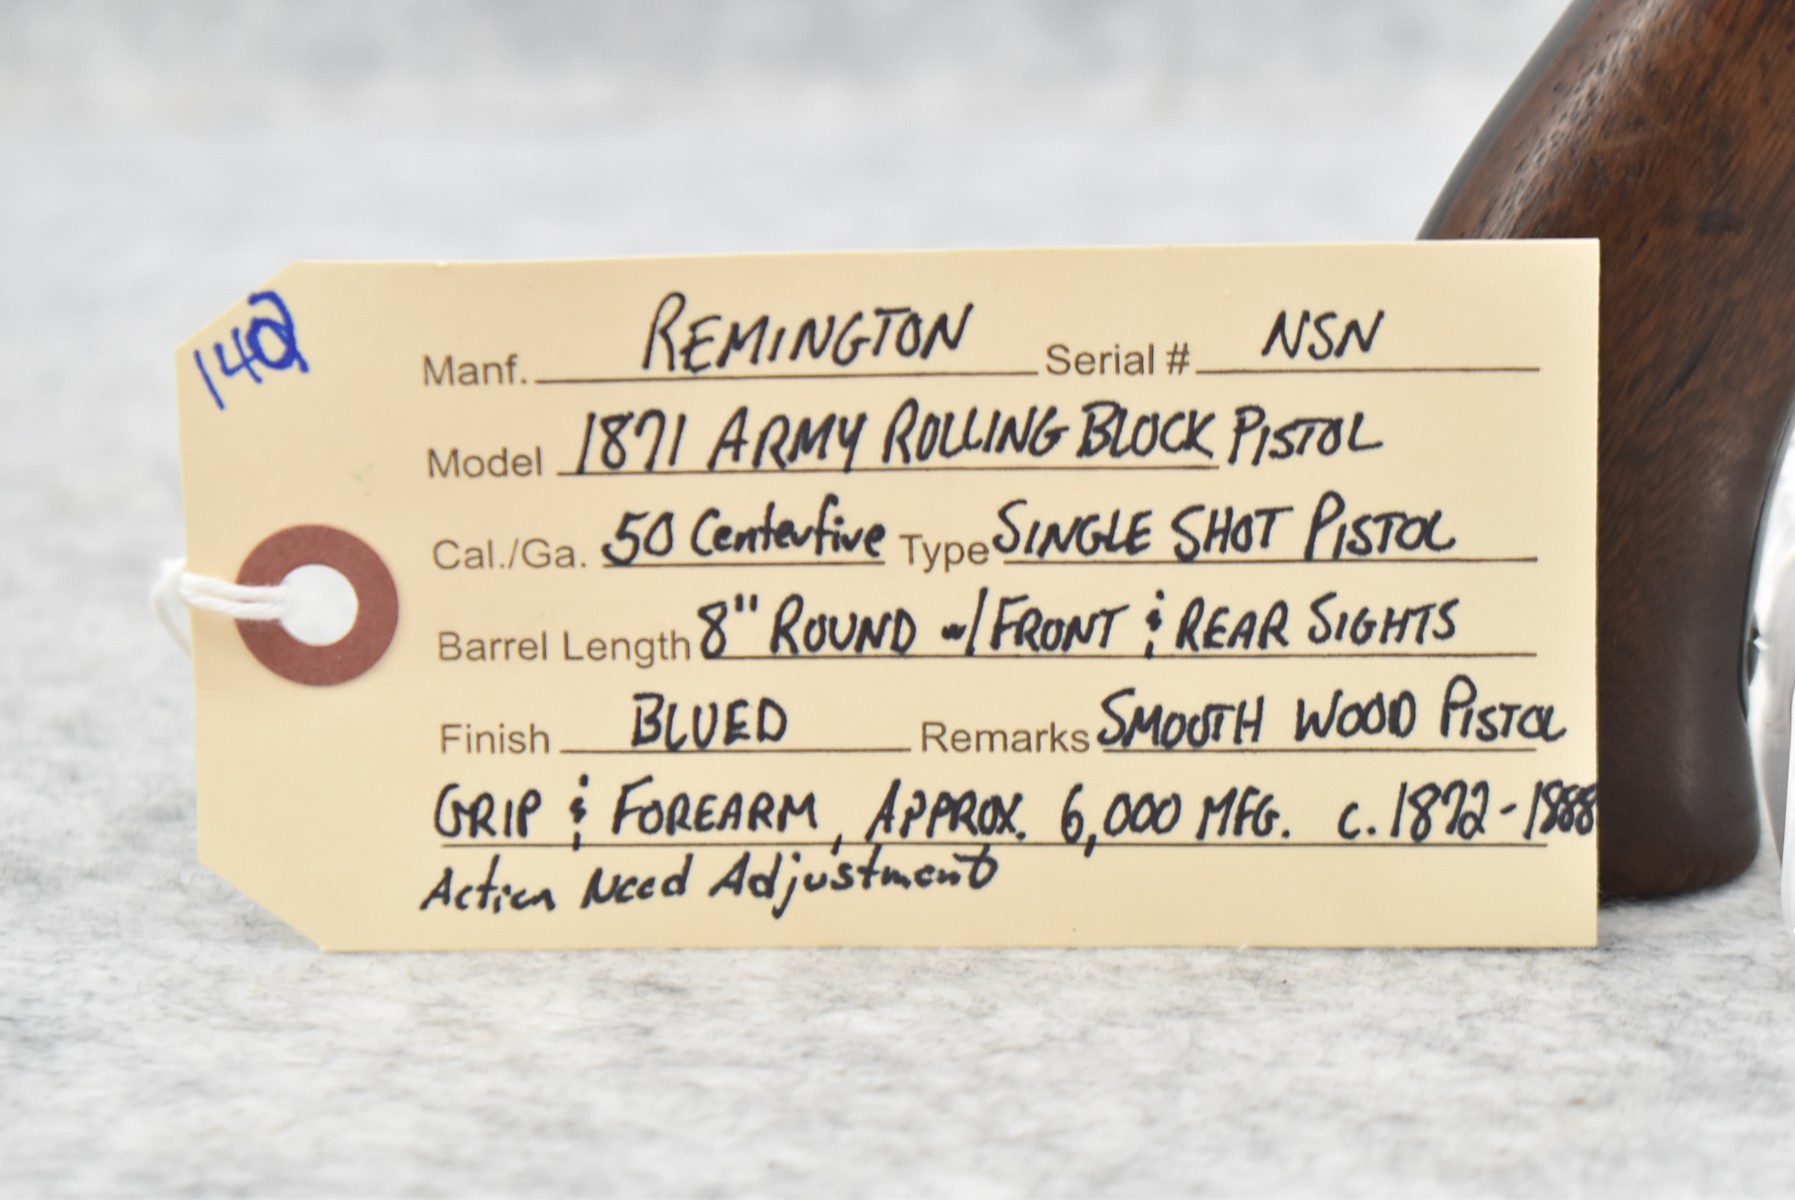 142
Manf. REMINGTON Serial # NSN
Model 1871 ARMY ROLLING BLOCK PISTOL
Cal./Ga. 50 Centerfire Type SINGLE SHOT PISTOL
Barrel Length 8" ROUND w/ FRONT & REAR SIGHTS
Finish BLUED Remarks SMOOTH WOOD PISTOL
GRIP & FOREARM, APPROX. 6,000 MFG. c. 1872-1888
Action Need Adjustment